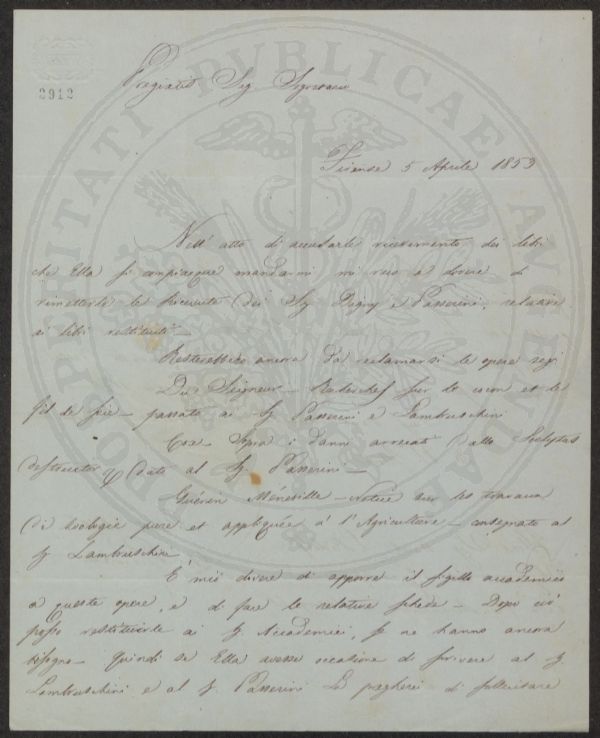 2912
PROSPERITATI PUBLICAE AUGENDAE
Pregiatis Sig Segretario
Firenze 5 Aprile 1853
Nell' atto di accusarle ricevimento dei libri
che Ella si compiacque mandarmi mi reco a dovere di
rimetterle le ricevute dei Sig Digny e Passerini, relative
ai libri restituiti —
Resterebbero ancora da reclamarsi le opere seg:
Du Seigneur — sur le cocon et le
fil de soie — passata ai S. Passerini e Lambruschini
sopra i danni arrecati dallo
destructor data al S. Passerini —
Guérin Méneville — Notice sur les travaux
di zoologie pure et appliquée à l'Agriculture — consegnato al
S. Lambruschini
È mio dovere di apporre il sigillo accademico
a queste opere, e di fare le relative schede — Dopo ciò
posso restituirle ai S. Accademici, se ne hanno ancora
bisogno — Quindi se Ella avesse occasione di scrivere al S.
Lambruschini e al S. Passerini La pregherei di sollecitare